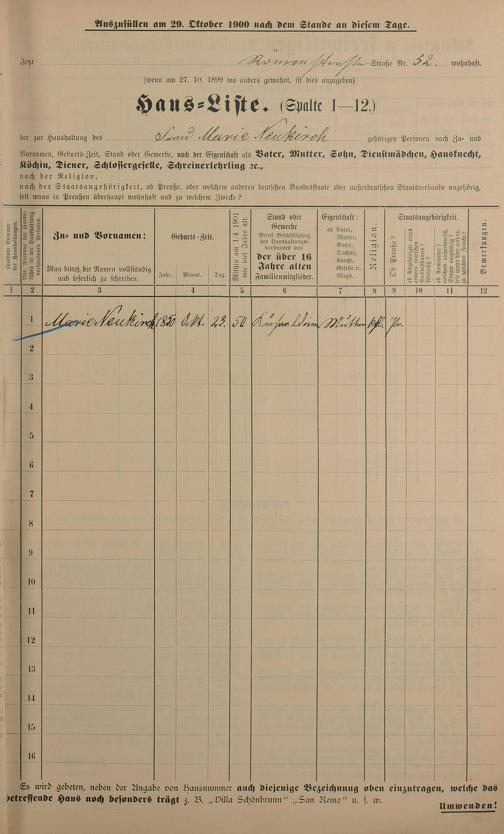 Auszufüllen am 29. Oktober 1900 nach dem Stande an diesem Tage.
Jetzt Römer Straße Nr. 52. wohnhaft.
(wenn am 27. 10. 1899 wo anders gewohnt, ist dies anzugeben)
Haus=Liste. (Spalte 1—12.)
der zur Haushaltung des Frau Marie Neukirch gehörigen Personen nach Zu= und
Vornamen, Geburts=Zeit, Stand oder Gewerbe, nach der Eigenschaft als Vater, Mutter, Sohn, Dienstmädchen, Hausknecht,
Köchin, Diener, Schlossergeselle, Schreinerlehrling ꝛc.,
nach der Religion,
nach der Staatsangehörigkeit, ob Preuße, oder welchem anderen deutschen Bundesstaate oder außerdeutschen Staatsverbande angehörig,
seit wann in Preußen überhaupt wohnhaft und zu welchem Zwecke?
Zu= und Vornamen:
Man bittet die Namen vollständig
und leserlich zu schreiben.
Geburts=Zeit.
Jahr. Monat. Tag.
Mithin am 1/4 1901
wie viel Jahre alt.
Stand oder
Gewerbe
der über 16
Jahre alten
Familienmitglieder.
Eigenschaft:
ob Vater,
Mutter,
Sohn,
Tochter,
Knecht,
Geselle ꝛc.
Magd.
Religion.
Staatsangehörigkeit.
Ob Preuße?
Bemerkungen.
1 2 3 4 5 6 7 8 9 10 11 12
1 Marie Neukirch 1850 Okt. 23. 50 Mutter Pr.
2
3
4
5
6
7
8
9
10
11
12
13
14
15
16
Es wird gebeten, neben der Angabe von Hausnummer auch diejenige Bezeichnung oben einzutragen, welche das
betreffende Haus noch besonders trägt z. B. "Villa Schönbrunn" "San Remo" u. s. w.
Umwenden!